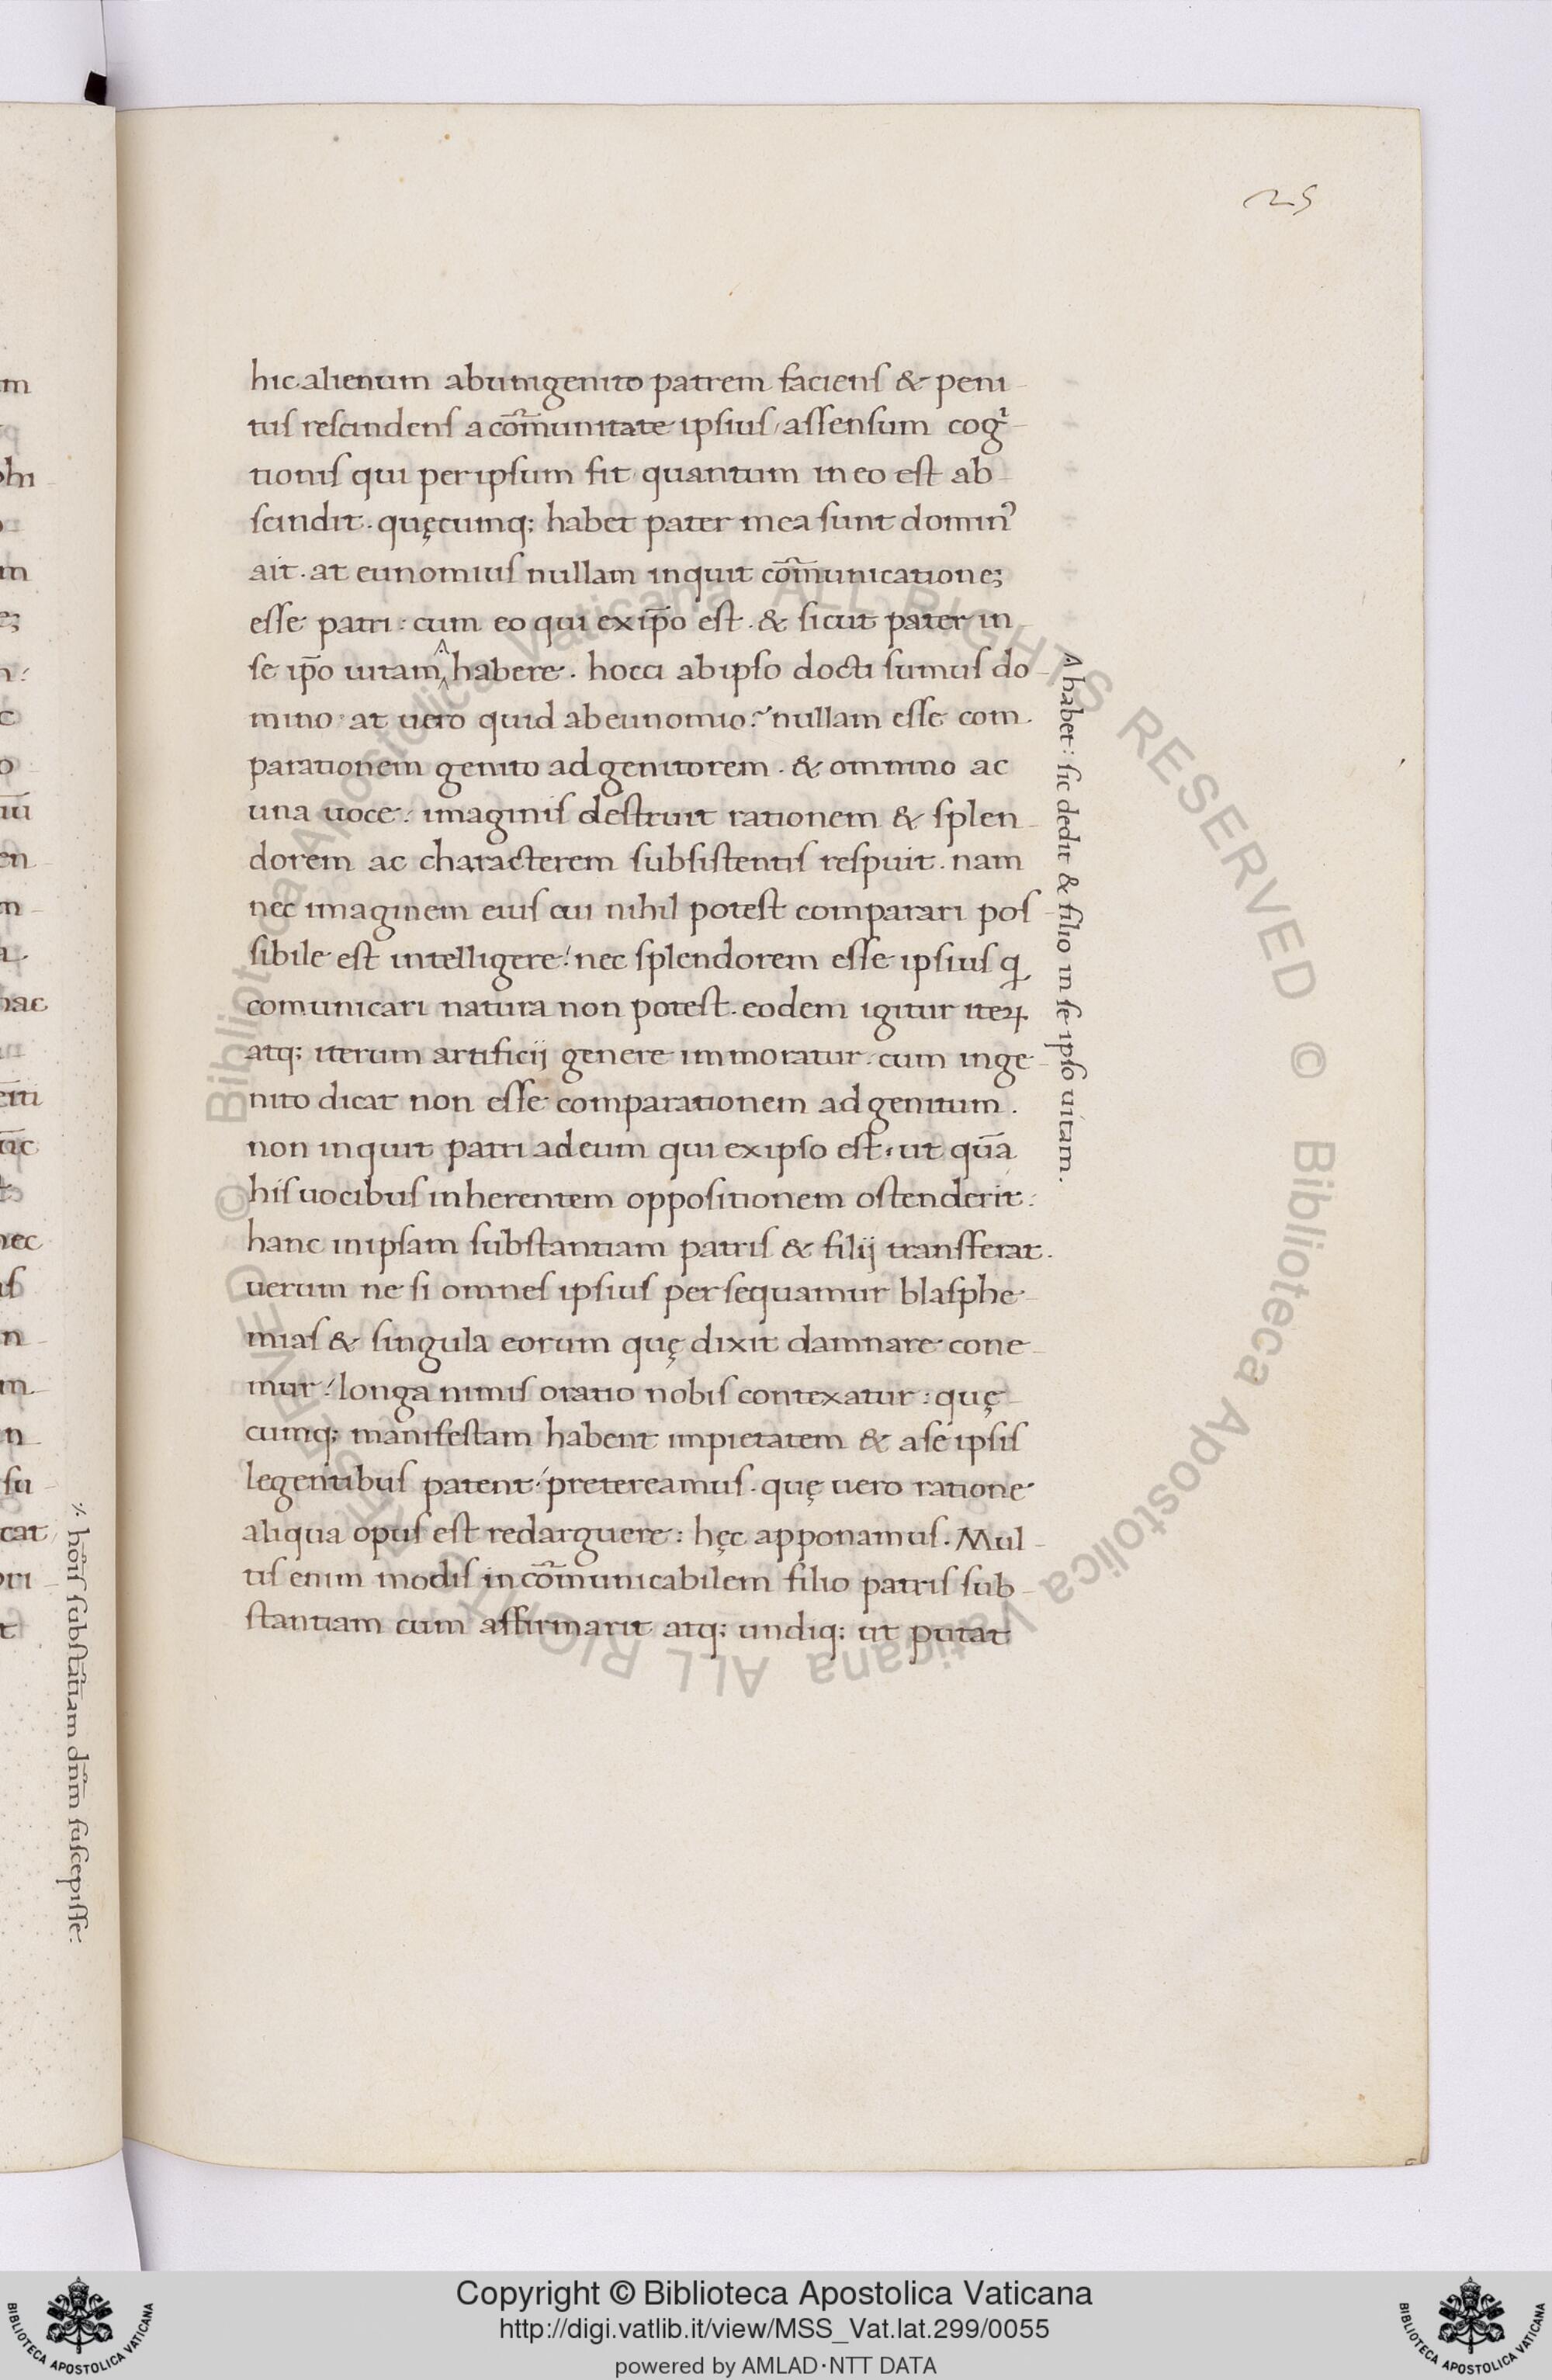 25
hic alienum ab unigenito patrem faciens & peni
tus rescindens a cōmunitate ipsius, assensum cogr̃
tionis qui per ipsum fit quantum in eo est ab
scindit. quęcumq; habet pater mea sunt domin᾿
ait. at eunomius nullam inquit cōmunicatione;
esse patri: cum eo qui ex ip̄o est. & sicut pater in
se ip̄o uitam habere. hoc ci ab ipso docti sumus do
mino. at uero quid ab eunomio? nullam esse com
parationem genito ad genitorem. & omnino ac
una uoce: imaginis destruit rationem & splen
dorem ac characterem subsistentis respuit. nam
nec imaginem eius cui nihil potest comparari pos
sibile est intelligere: nec splendorem esse ipsius q
comunicari natura non potest. eodem igitur iteꝝ
atq; iterum artificij genere immoratur. cum inge
nito dicat non esse comparationem ad genitum.
non inquit patri ad eum qui ex ipso est. ut quā
his uocibus inherentem oppositionem ostenderit:
hanc in ipsam substantiam patris & filij transferat.
uerum ne si omnes ipsius persequamur blasphe
mias & singula eorum quę dixit damnare cone
mur: longa nimis oratio nobis contexatur: quę
cumq; manifestam habent impietatem & a se ipsis
legentibus patent: pretereamus. quę uero ratione
aliqua opus est redarguere: hęc apponamus. Mul
tis enim modis incōmunicabilem filio patris sub
stantiam cum affirmarit atq; undiq; ut putat
habet: sic dedit & filio in se ipso uitam.
hōis substātiam dn̄m suscepisse.
© Biblioteca Apostolica Vaticana ALL RIGHTS RESERVED © Biblioteca Apostolica Vaticana ALL RIGHTS RESERVED
Copyright © Biblioteca Apostolica Vaticana
http://digi.vatlib.it/view/MSS_Vat.lat.299/0055
powered by AMLAD·NTT DATA
BIBLIOTECA APOSTOLICA VATICANA
BIBLIOTECA APOSTOLICA VATICANA